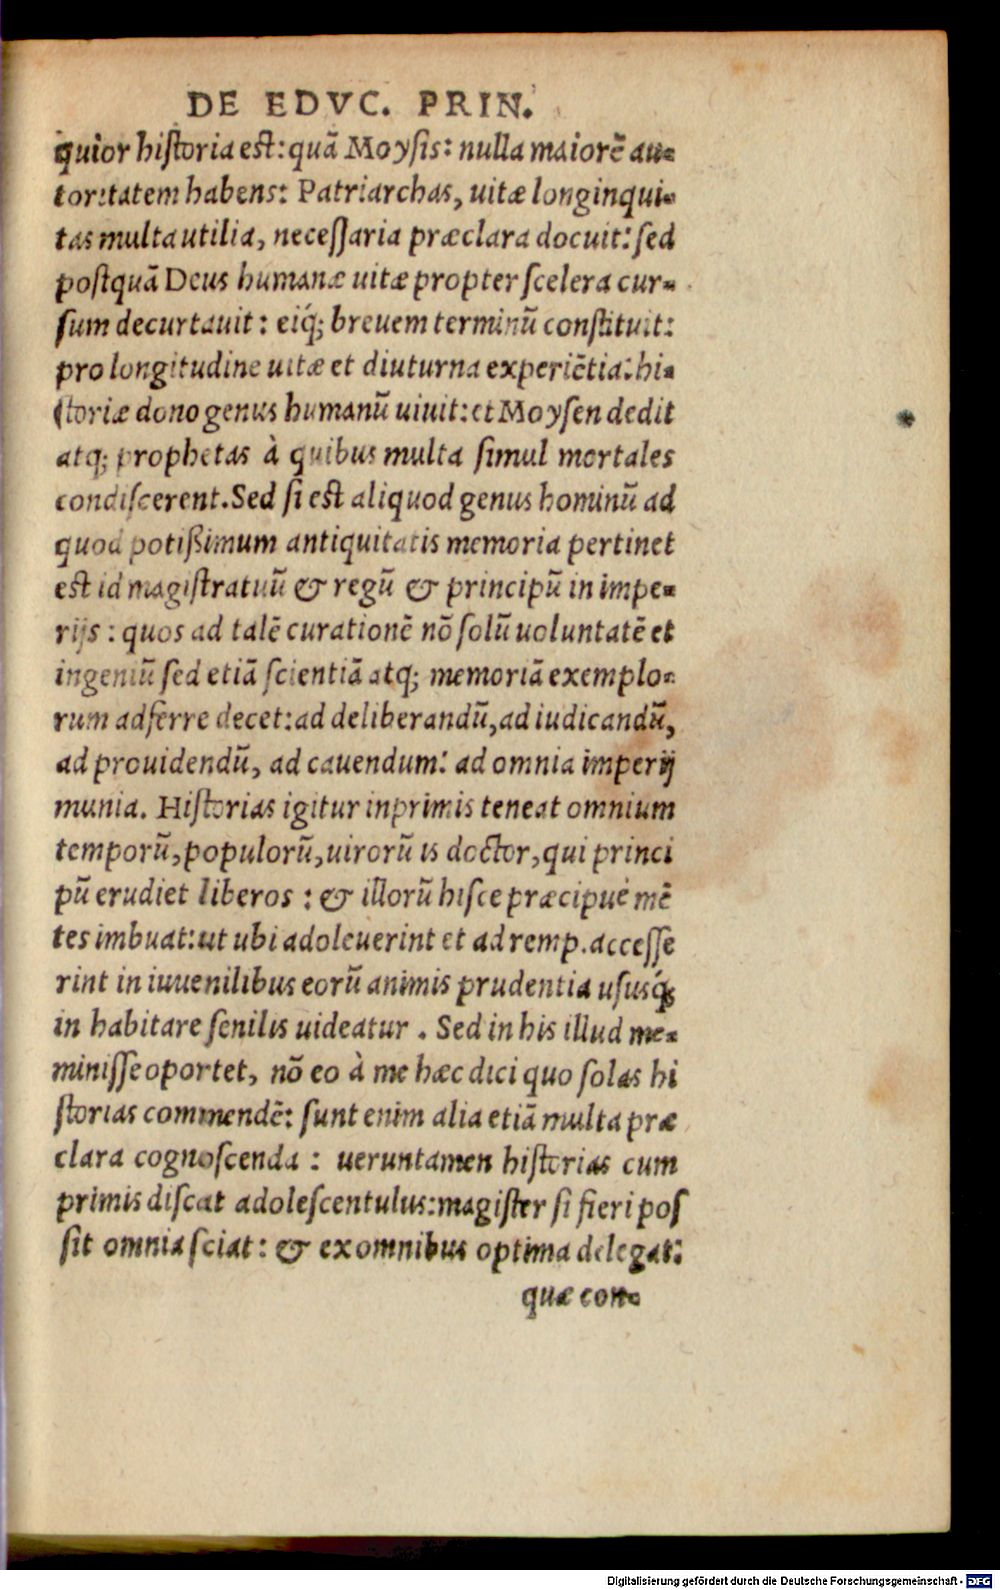 DE EDVC. PRIN.
quior historia est: quã Moysis: nulla maiorẽ au-
toritatem habens: Patriarchas, uitæ longinqui-
tas multa utilia, necessaria præclara docuit: sed
postquã Deus humanæ uitæ propter scelera cur-
sum decurtauit: eiq́; breuem terminũ constituit:
pro longitudine uitæ et diuturna experiẽtia: hi-
storiæ dono genus humanũ uiuit: et Moysen dedit
atq; prophetas à quibus multa simul mortales
condiscerent. Sed si est aliquod genus hominũ ad
quod potißimum antiquitatis memoria pertinet
est id magistratuũ & regũ & principũ in impe-
rijs: quos ad talẽ curationẽ nõ solũ uoluntatẽ et
ingeniũ sed etiã scientiã atq; memoriã exemplo-
rum adferre decet: ad deliberandũ, ad iudicandũ,
ad prouidendũ, ad cauendum: ad omnia imperij
munia. Historias igitur inprimis teneat omnium
temporũ, populorũ, uirorũ is doctor, qui princi
pũ erudiet liberos: & illorũ hisce præcipuè mẽ
tes imbuat: ut ubi adoleuerint et ad remp. accesse
rint in iuuenilibus eorũ animis prudentia ususq́;
in habitare senilis uideatur. Sed in his illud me-
minisse oportet, nõ eo à me hæc dici quo solas hi
storias commendẽ: sunt enim alia etiã multa præ
clara cognoscenda: ueruntamen historias cum
primis discat adolescentulus: magister si fieri pos
sit omnia sciat: & ex omnibus optima delegat:
quæ con-
Digitalisierung gefördert durch die Deutsche Forschungsgemeinschaft - DFG